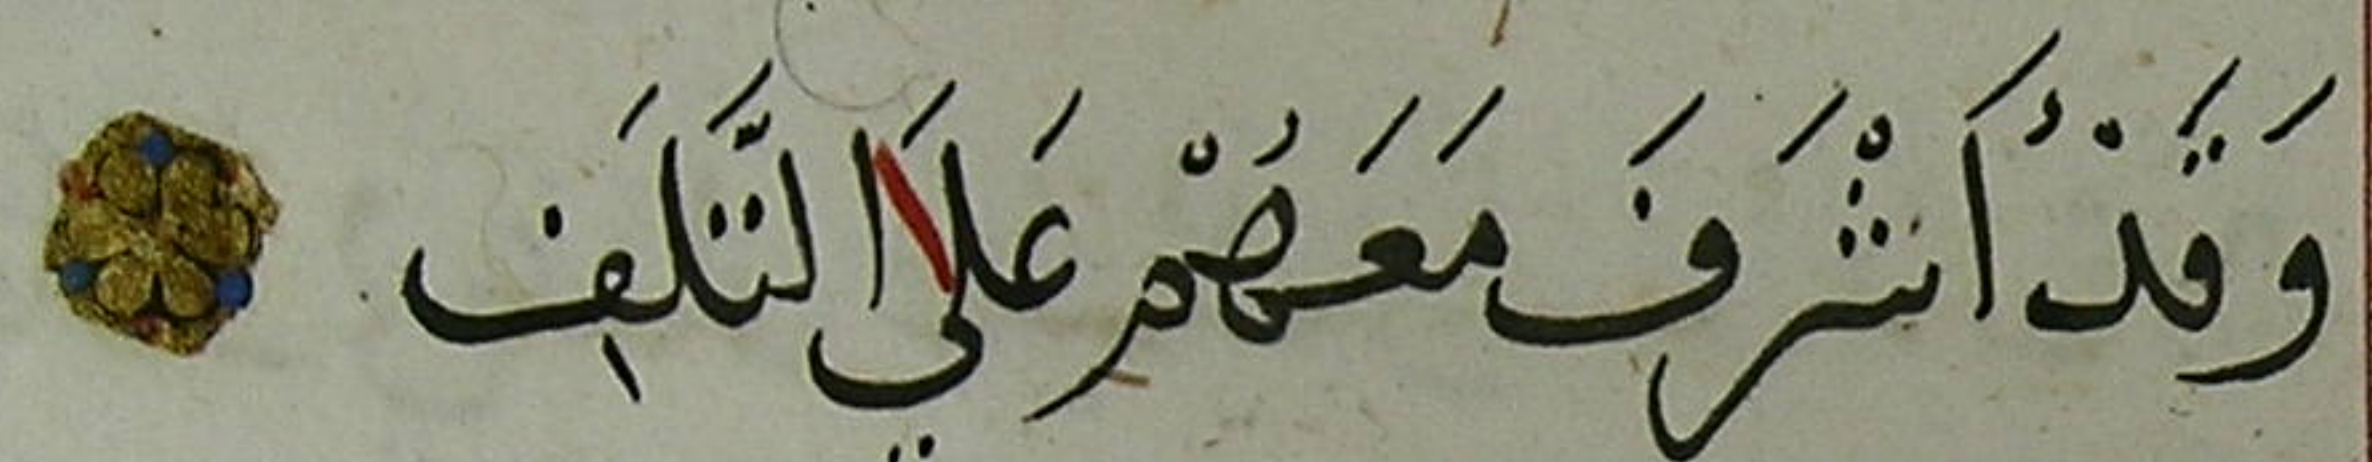 وَقَدْ أَشْرَفَ مَعَهُمْ عَلَي التَّلَفِ